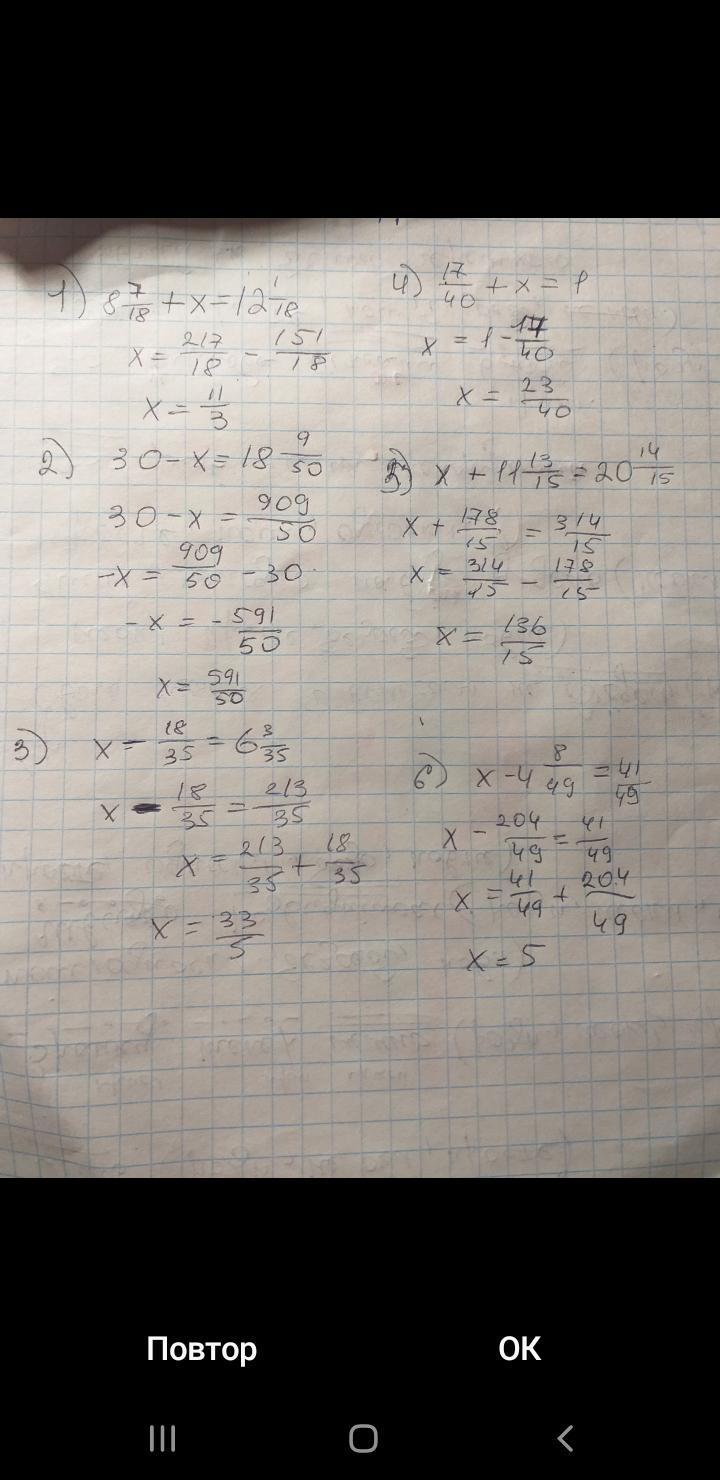 1) 8 7/18 + x = 12 1/18
x = 217/18 - 151/18
x = 11/3
2) 30 - x = 18 9/50
30 - x = 909/50
-x = 909/50 - 30
-x = -591/50
x = 591/50
3) x - 18/35 = 6 3/35
x - 18/35 = 213/35
x = 213/35 + 18/35
x = 33/5
4) 17/40 + x = 1
x = 1 - 17/40
x = 23/40
5) x + 11 13/15 = 20 14/15
x + 178/15 = 314/15
x = 314/15 - 178/15
x = 136/15
6) x - 4 8/49 = 41/49
x - 204/49 = 41/49
x = 41/49 + 204/49
x = 5
Повтор OK